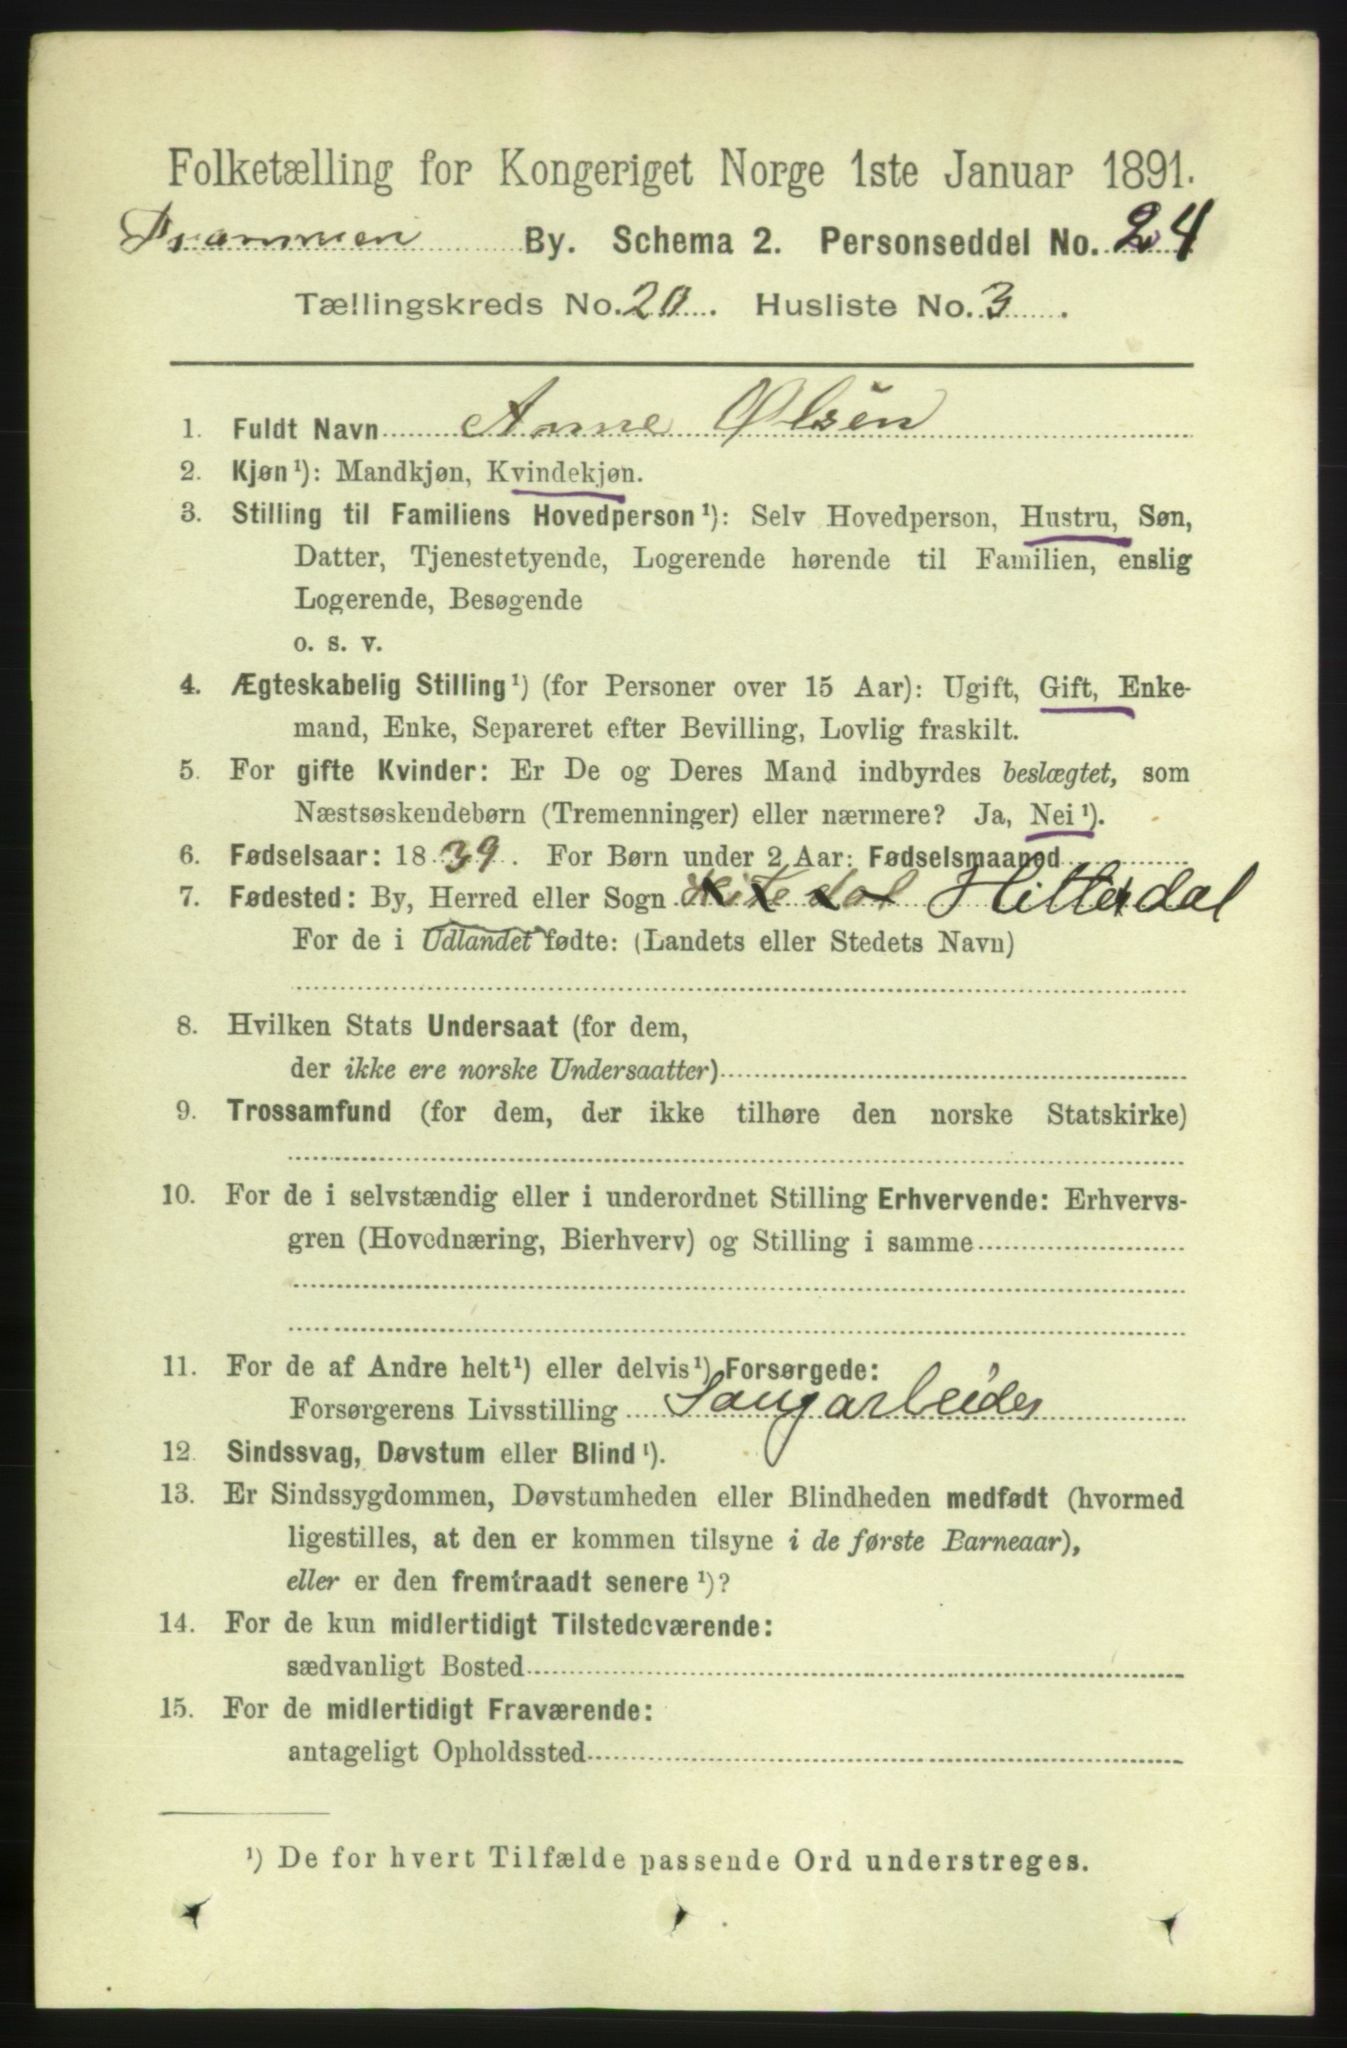 Folketælling for Kongeriget Norge 1ste Januar 1891.
Drammen By. Schema 2. Personseddel No. 24
Tællingskreds No. 20. Husliste No. 3.
1. Fuldt Navn Anne Olsen
2. Kjøn¹): Mandkjøn, Kvindekjøn.
3. Stilling til Familiens Hovedperson¹): Selv Hovedperson, Hustru, Søn,
Datter, Tjenestetyende, Logerende hørende til Familien, enslig
Logerende, Besøgende
o. s. v.
4. Ægteskabelig Stilling¹) (for Personer over 15 Aar): Ugift, Gift, Enke-
mand, Enke, Separeret efter Bevilling, Lovlig fraskilt.
5. For gifte Kvinder: Er De og Deres Mand indbyrdes beslægtet, som
Næstsøskendebørn (Tremenninger) eller nærmere? Ja, Nei¹).
6. Fødselsaar: 1839. For Børn under 2 Aar: Fødselsmaaned
7. Fødested: By, Herred eller Sogn Hitterdal
For de i Udlandet fødte: (Landets eller Stedets Navn)
8. Hvilken Stats Undersaat (for dem,
der ikke ere norske Undersaatter)
9. Trossamfund (for dem, der ikke tilhøre den norske Statskirke)
10. For de i selvstændig eller i underordnet Stilling Erhvervende: Erhvervs-
gren (Hovednæring, Bierhverv) og Stilling i samme
11. For de af Andre helt¹) eller delvis¹) Forsørgede:
Forsørgerens Livsstilling Saugarbeider
12. Sindssvag, Døvstum eller Blind¹).
13. Er Sindssygdommen, Døvstumheden eller Blindheden medfødt (hvormed
ligestilles, at den er kommen tilsyne i de første Barneaar),
eller er den fremtraadt senere¹)?
14. For de kun midlertidigt Tilstedeværende:
sædvanligt Bosted
15. For de midlertidigt Fraværende:
antageligt Opholdssted
¹) De for hvert Tilfælde passende Ord understreges.